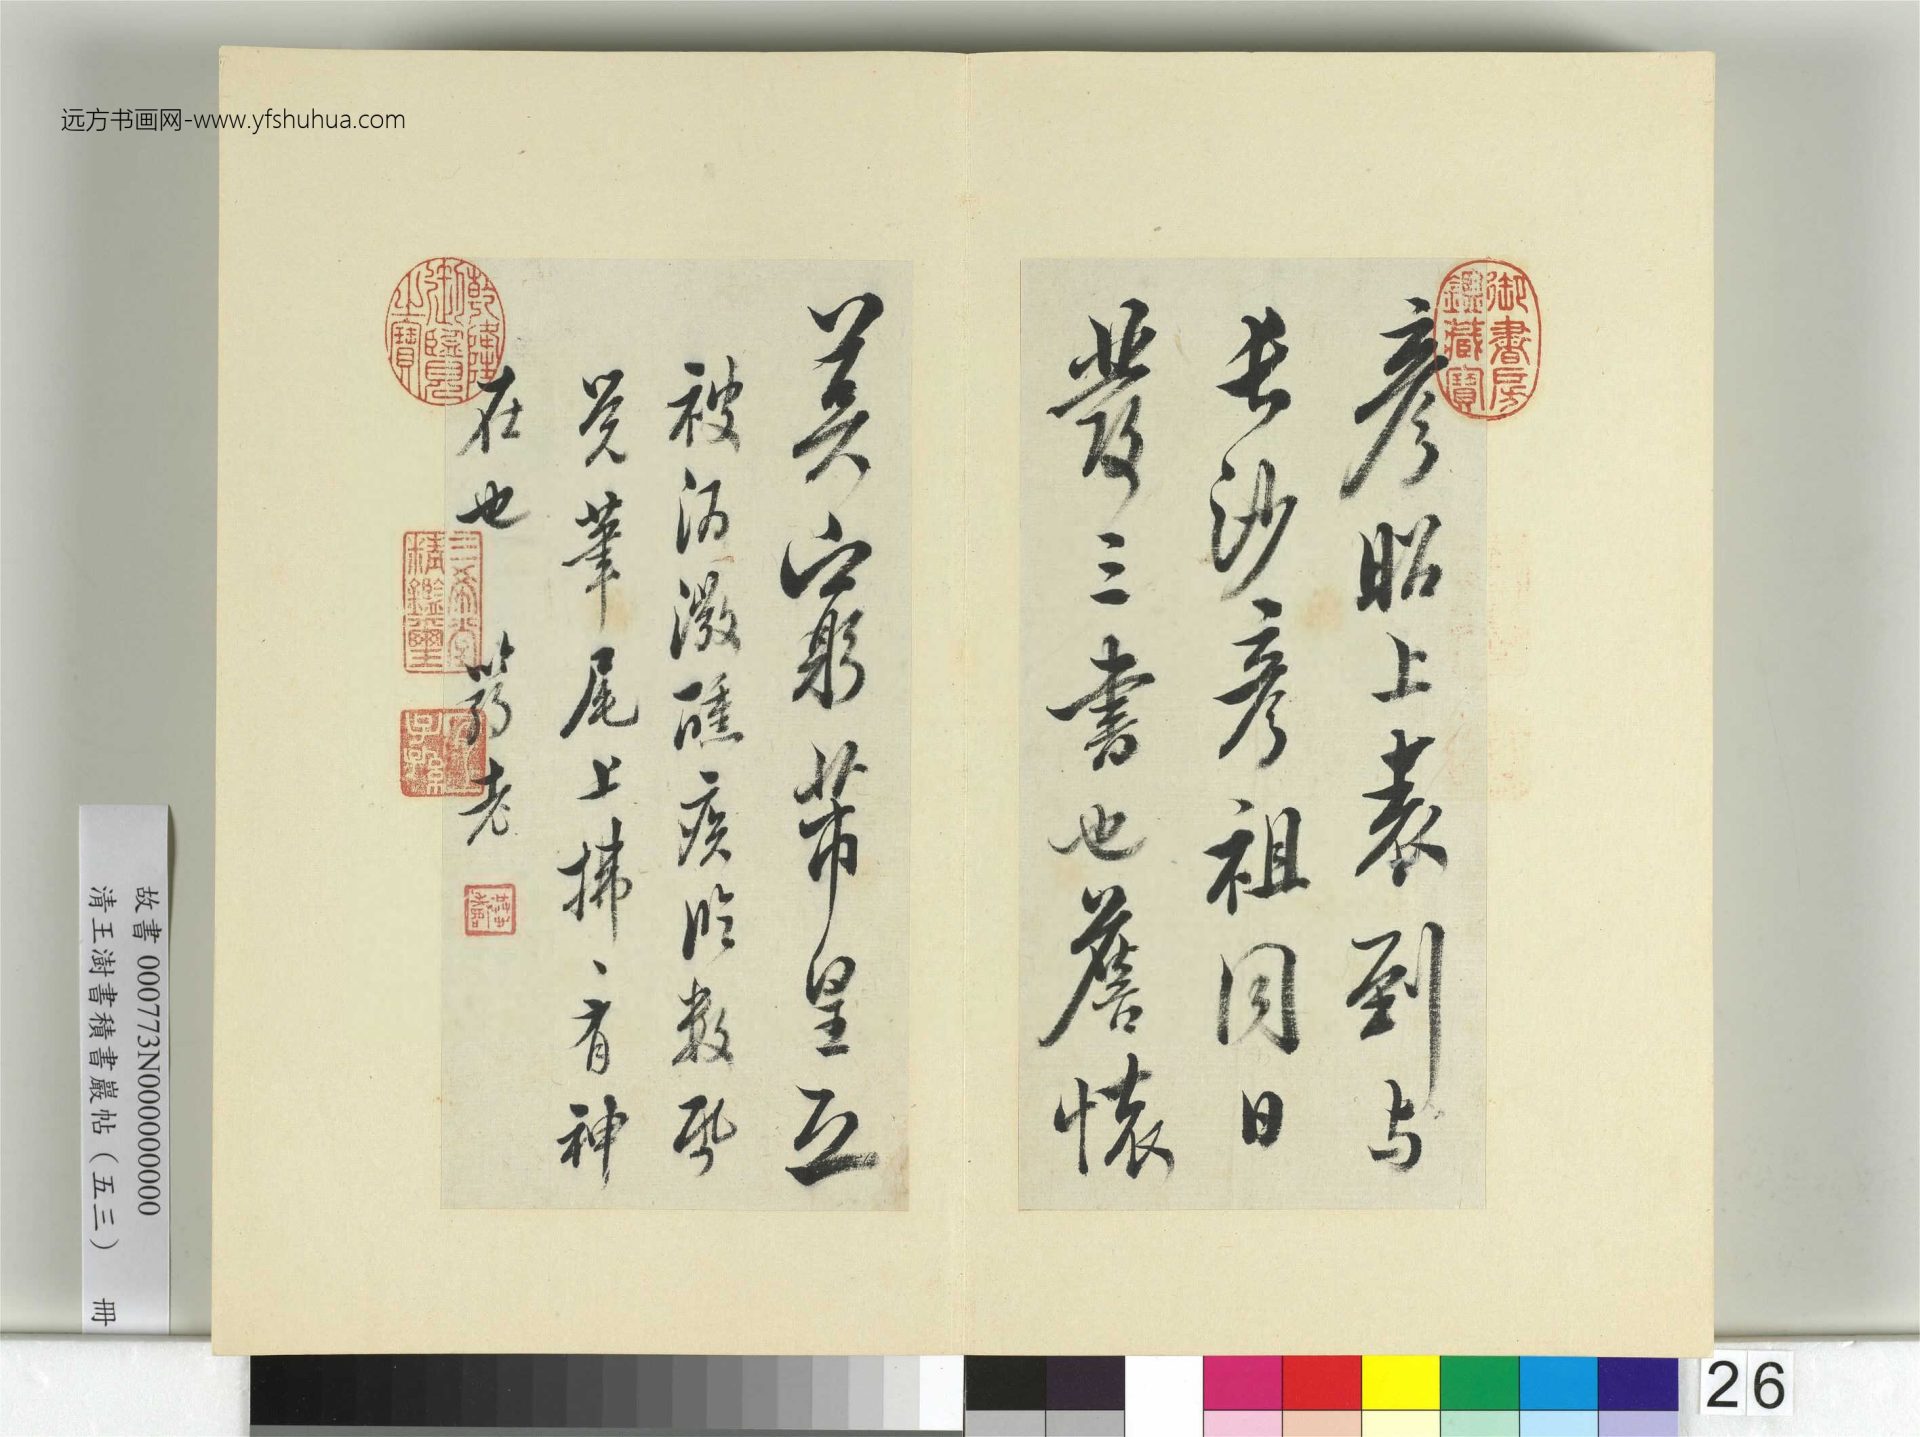 远方书画网-www.yfshuhua.com
彦昭上表到与
長沙彦祖同日
發三書也舊懷
莫窮芾皇恐
被酒微醺疾臨數
覺筆尾上拂拂有神
在也 蒻老
御書房鑑藏寶
乾隆御覽之寶
三希堂精鑑璽
宜子孫
故書 000773N000000000
清王澍書積書巖帖（五三） 冊
26